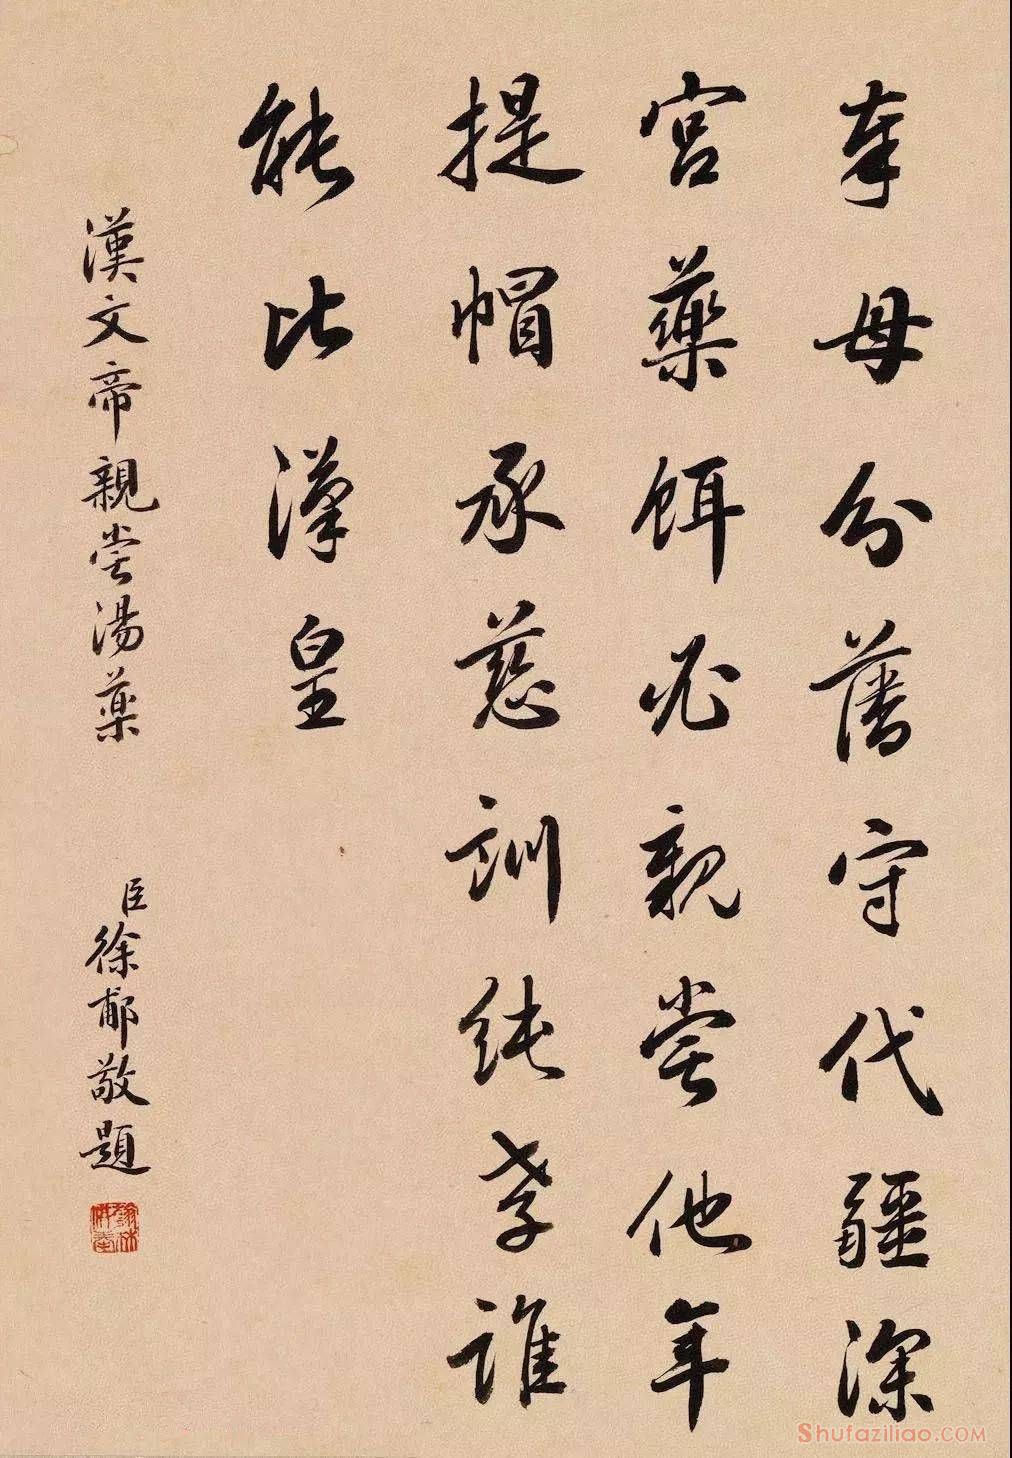 奉母分藩守代疆深
宮藥餌必親嘗他年
提帽承慈訓純孝誰
能比漢皇
漢文帝親嘗湯藥
臣徐郙敬題
Shufaziliao.COM